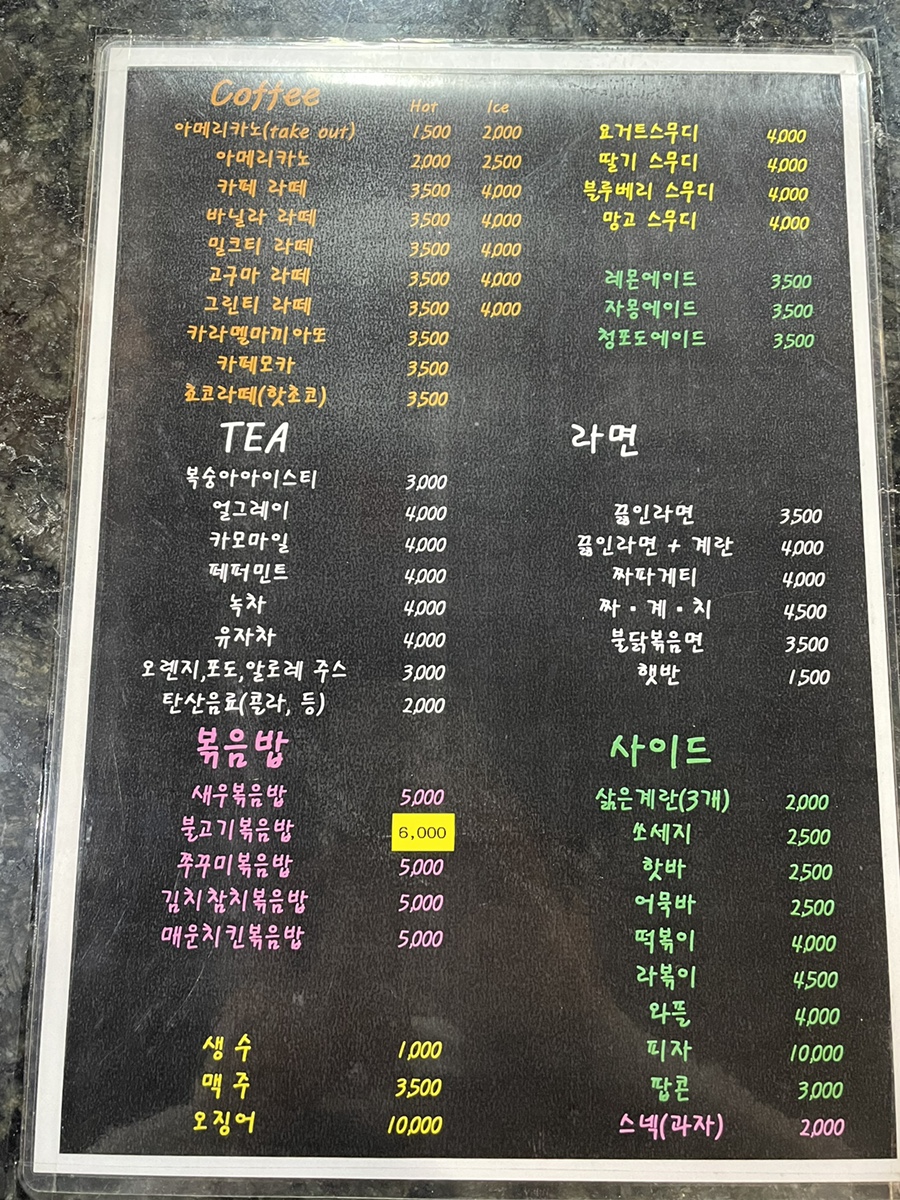 Coffee Hot Ice
아메리카노(take out) 1,500 2,000
아메리카노 2,000 2,500
카페 라떼 3,500 4,000
바닐라 라떼 3,500 4,000
밀크티 라떼 3,500 4,000
고구마 라떼 3,500 4,000
그린티 라떼 3,500 4,000
카라멜마끼아또 3,500
카페모카 3,500
쵸코라떼(핫초코) 3,500
요거트스무디 4,000
딸기 스무디 4,000
블루베리 스무디 4,000
망고 스무디 4,000
레몬에이드 3,500
자몽에이드 3,500
청포도에이드 3,500
TEA
복숭아아이스티 3,000
얼그레이 4,000
카모마일 4,000
페퍼민트 4,000
녹차 4,000
유자차 4,000
오렌지,포도,알로레 주스 3,000
탄산음료(콜라, 등) 2,000
라면
끓인라면 3,500
끓인라면 + 계란 4,000
짜파게티 4,000
짜·계·치 4,500
불닭볶음면 3,500
햇반 1,500
볶음밥
새우볶음밥 5,000
불고기볶음밥 6,000
쭈꾸미볶음밥 5,000
김치참치볶음밥 5,000
매운치킨볶음밥 5,000
생 수 1,000
맥 주 3,500
오징어 10,000
사이드
삶은계란(3개) 2,000
쏘세지 2,500
핫바 2,500
어묵바 2,500
떡볶이 4,000
라볶이 4,500
와플 4,000
피자 10,000
팝콘 3,000
스넥(과자) 2,000